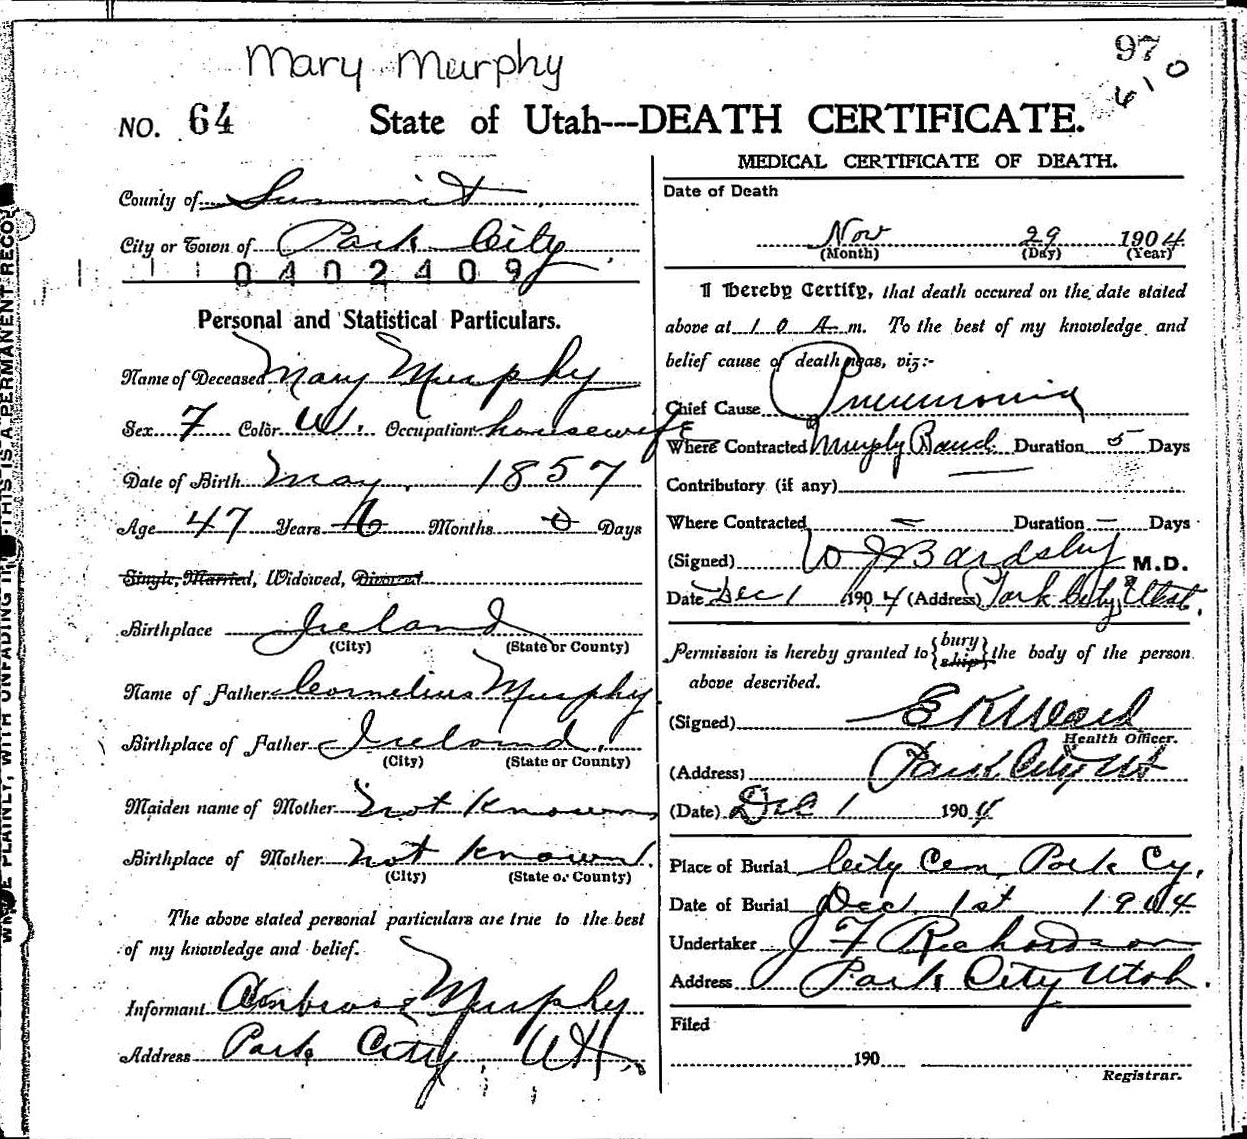 Mary Murphy
97
610
NO. 64 State of Utah---DEATH CERTIFICATE.
County of Summit
City or Town of Park City
0402409
Personal and Statistical Particulars.
Name of Deceased Mary Murphy
Sex F Color W. Occupation housewife
Date of Birth May, 1857
Age 47 Years 6 Months 0 Days
Single, Married, Widowed, Divorced
Birthplace Ireland
(City) (State or County)
Name of Father Cornelius Murphy
Birthplace of Father Ireland.
(City) (State or County)
Maiden name of Mother not known
Birthplace of Mother not known.
(City) (State or County)
The above stated personal particulars are true to the best
of my knowledge and belief.
Informant Ambrose Murphy
Address Park City, UtH.
MEDICAL CERTIFICATE OF DEATH.
Date of Death
Nov 29 1904
(Month) (Day) (Year)
I Hereby Certify, that death occured on the date stated
above at 10 A m. To the best of my knowledge and
belief cause of death was, viz:-
Chief Cause Pneumonia
Where Contracted Murphy Duration 5 Days
Contributory (if any)
Where Contracted – Duration – Days
(Signed) W J Bardsley M.D.
Date Dec 1 1904 (Address) Park City, Utah.
Permission is hereby granted to {bury ship} the body of the person
above described.
(Signed) E K
Health Officer.
(Address) Park City Ut
(Date) Dec 1 1904
Place of Burial City Cem Park Cy,
Date of Burial Dec 1st 1904
Undertaker J F Richardson
Address Park City Utah.
Filed
190
Registrar.
PLAINLY, WITH UNFADING THIS IS A PERMANENT RECO